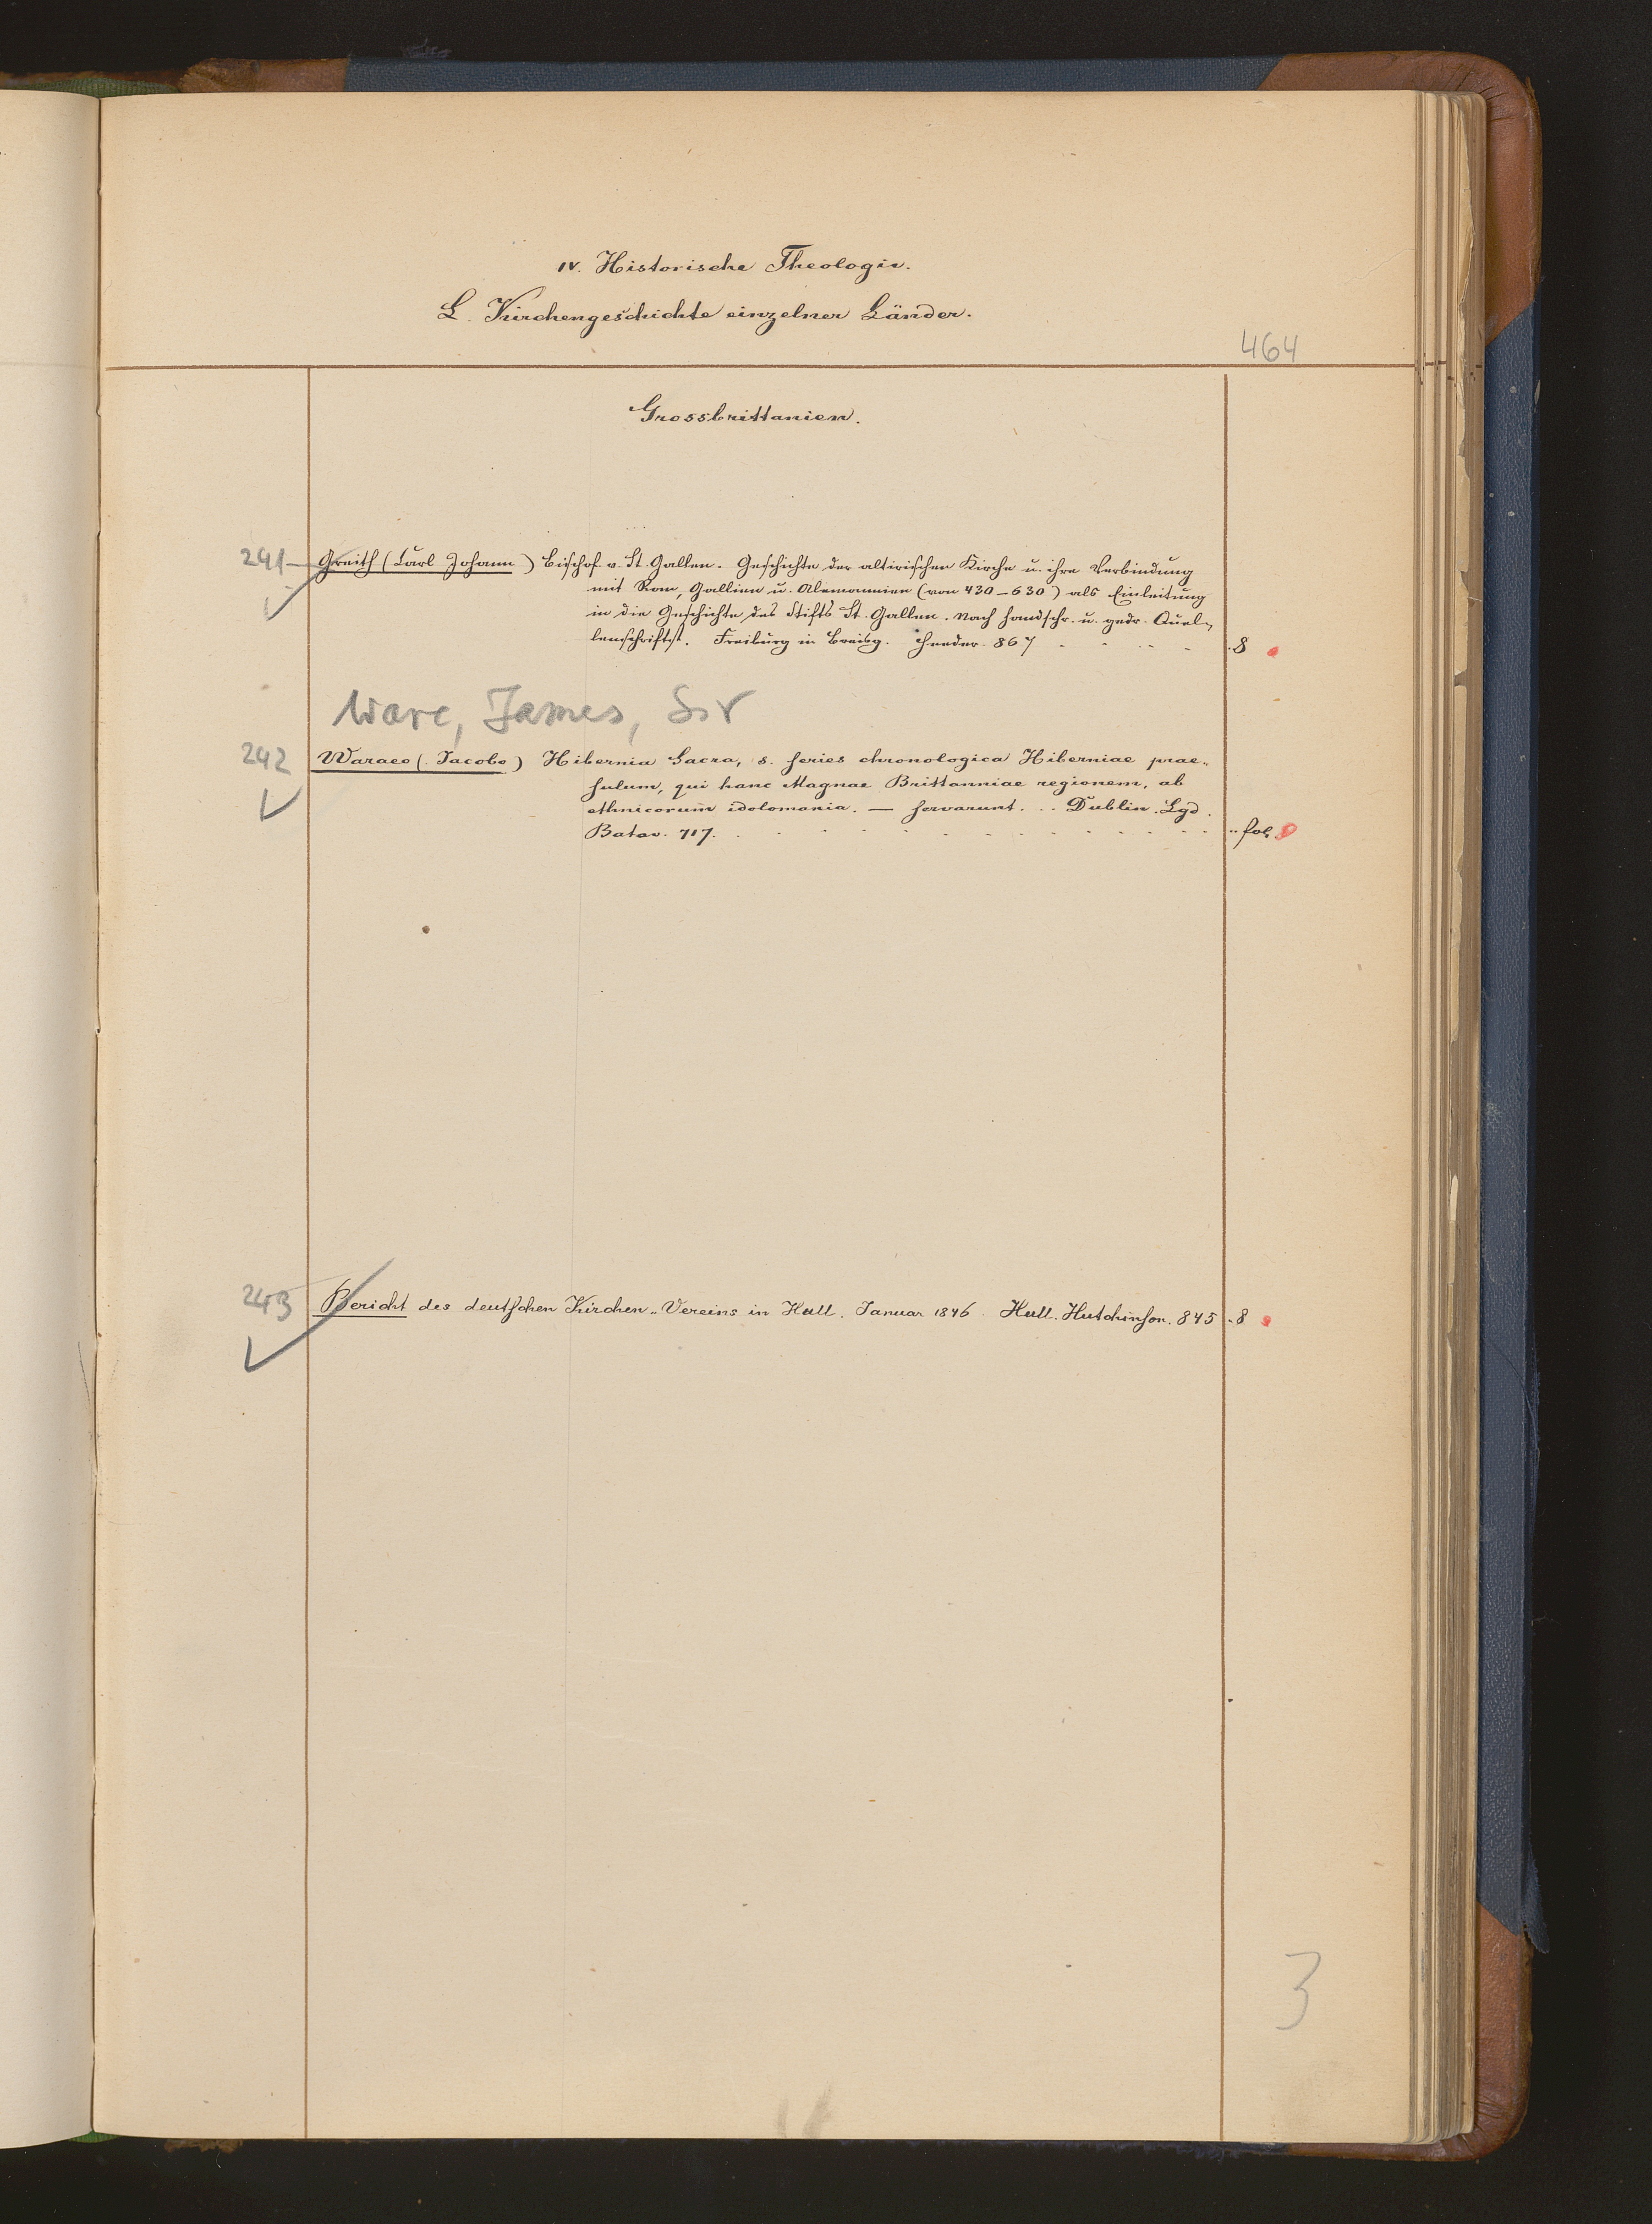 IV. Historische Theologie.
L. Kirchengeschichte einzelner Länder.
464
Grossbrittanien.
241 Greith (Carl Johann) Bischof v. St. Gallen. Geschichte der altirischen Kirche u. ihre Verbindung
mit Rom, Gallien u. Alemannien (von 430–630) als Einleitung
in die Geschichte des Stifts St. Gallen. Nach handschr. u. gedr. Quel-
lenschriftst. Freiburg in Breisg. Herder. 867 8
Ware, James, Sir
242 Waraeo (Jacobo) Hibernia Sacra, s. series chronologica Hiberniae prae-
sulum, qui hanc Magnae Brittanniae regionem, ab
ethnicorum idolomania. — servarunt. .. Dublin. Lgd.
Batav. 717. fol.
243 Bericht des deutschen Kirchen-Vereins in Hull. Januar 1846. Hull. Hutchinson. 845 8
3